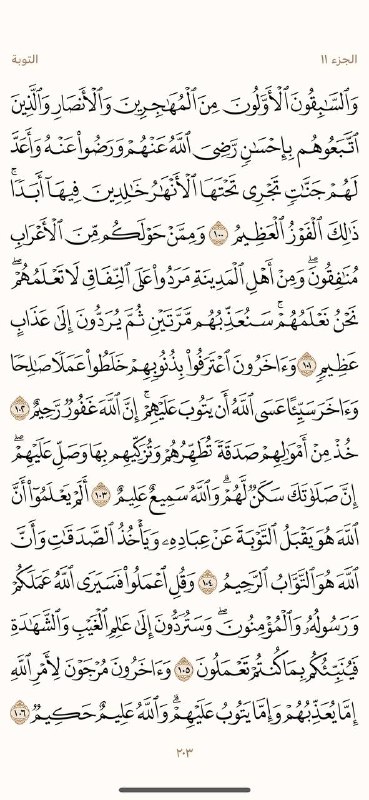 الجزء ١١
التوبة
وَٱلسَّٰبِقُونَ ٱلۡأَوَّلُونَ مِنَ ٱلۡمُهَٰجِرِينَ وَٱلۡأَنصَارِ وَٱلَّذِينَ
ٱتَّبَعُوهُم بِإِحۡسَٰنٖ رَّضِيَ ٱللَّهُ عَنۡهُمۡ وَرَضُواْ عَنۡهُ وَأَعَدَّ
لَهُمۡ جَنَّٰتٖ تَجۡرِي تَحۡتَهَا ٱلۡأَنۡهَٰرُ خَٰلِدِينَ فِيهَآ أَبَدٗاۚ
ذَٰلِكَ ٱلۡفَوۡزُ ٱلۡعَظِيمُ ١٠٠ وَمِمَّنۡ حَوۡلَكُم مِّنَ ٱلۡأَعۡرَابِ
مُنَٰفِقُونَۖ وَمِنۡ أَهۡلِ ٱلۡمَدِينَةِ مَرَدُواْ عَلَى ٱلنِّفَاقِ لَا تَعۡلَمُهُمۡۖ
نَحۡنُ نَعۡلَمُهُمۡۚ سَنُعَذِّبُهُم مَّرَّتَيۡنِ ثُمَّ يُرَدُّونَ إِلَىٰ عَذَابٍ
عَظِيمٖ ١٠١ وَءَاخَرُونَ ٱعۡتَرَفُواْ بِذُنُوبِهِمۡ خَلَطُواْ عَمَلٗا صَٰلِحٗا
وَءَاخَرَ سَيِّئًا عَسَى ٱللَّهُ أَن يَتُوبَ عَلَيۡهِمۡۚ إِنَّ ٱللَّهَ غَفُورٞ رَّحِيمٌ ١٠٢
خُذۡ مِنۡ أَمۡوَٰلِهِمۡ صَدَقَةٗ تُطَهِّرُهُمۡ وَتُزَكِّيهِم بِهَا وَصَلِّ عَلَيۡهِمۡۖ
إِنَّ صَلَوٰتَكَ سَكَنٞ لَّهُمۡۗ وَٱللَّهُ سَمِيعٌ عَلِيمٌ ١٠٣ أَلَمۡ يَعۡلَمُوٓاْ أَنَّ
ٱللَّهَ هُوَ يَقۡبَلُ ٱلتَّوۡبَةَ عَنۡ عِبَادِهِۦ وَيَأۡخُذُ ٱلصَّدَقَٰتِ وَأَنَّ
ٱللَّهَ هُوَ ٱلتَّوَّابُ ٱلرَّحِيمُ ١٠٤ وَقُلِ ٱعۡمَلُواْ فَسَيَرَى ٱللَّهُ عَمَلَكُمۡ
وَرَسُولُهُۥ وَٱلۡمُؤۡمِنُونَۖ وَسَتُرَدُّونَ إِلَىٰ عَٰلِمِ ٱلۡغَيۡبِ وَٱلشَّهَٰدَةِ
فَيُنَبِّئُكُم بِمَا كُنتُمۡ تَعۡمَلُونَ ١٠٥ وَءَاخَرُونَ مُرۡجَوۡنَ لِأَمۡرِ ٱللَّهِ
إِمَّا يُعَذِّبُهُمۡ وَإِمَّا يَتُوبُ عَلَيۡهِمۡۗ وَٱللَّهُ عَلِيمٌ حَكِيمٞ ١٠٦
٢٠٣